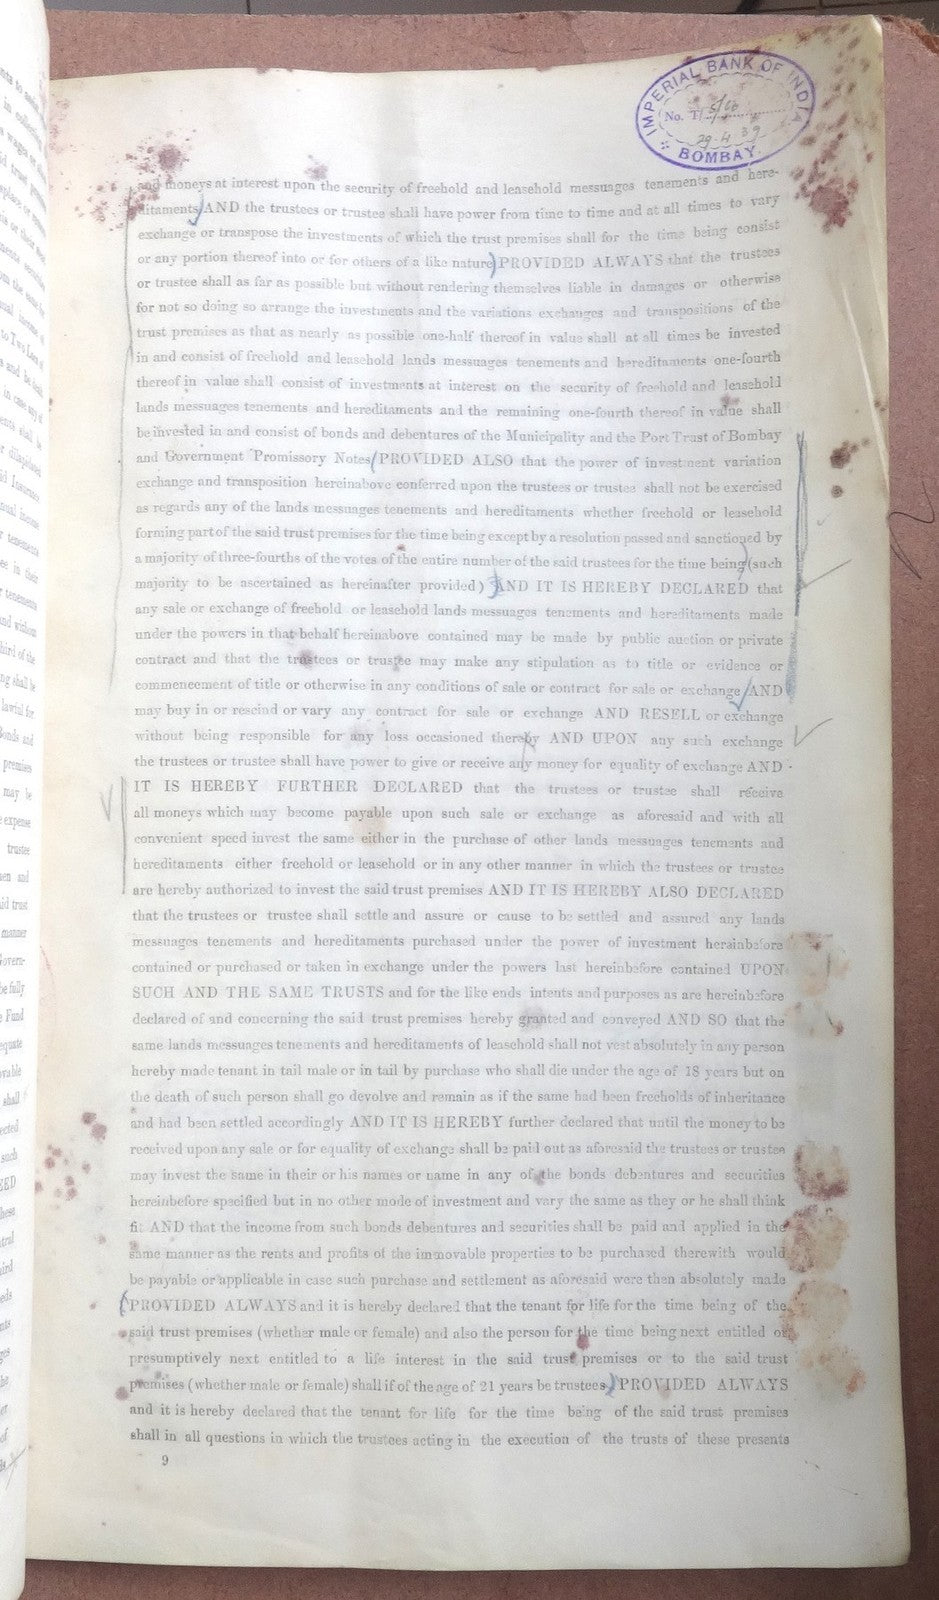 IMPERIAL BANK OF INDIA
No. T/ 5/66
29-4-39
BOMBAY.
and moneys at interest upon the security of freehold and leasehold messuages tenements and here-
ditaments AND the trustees or trustee shall have power from time to time and at all times to vary
exchange or transpose the investments of which the trust premises shall for the time being consist
or any portion thereof into or for others of a like nature PROVIDED ALWAYS that the trustees
or trustee shall as far as possible but without rendering themselves liable in damages or otherwise
for not so doing so arrange the investments and the variations exchanges and transpositions of the
trust premises as that as nearly as possible one-half thereof in value shall at all times be invested
in and consist of freehold and leasehold lands messuages tenements and hereditaments one-fourth
thereof in value shall consist of investments at interest on the security of freehold and leasehold
lands messuages tenements and hereditaments and the remaining one-fourth thereof in value shall
be invested in and consist of bonds and debentures of the Municipality and the Port Trust of Bombay
and Government Promissory Notes PROVIDED ALSO that the power of investment variation
exchange and transposition hereinabove conferred upon the trustees or trustee shall not be exercised
as regards any of the lands messuages tenements and hereditaments whether freehold or leasehold
forming part of the said trust premises for the time being except by a resolution passed and sanctioned by
a majority of three-fourths of the votes of the entire number of the said trustees for the time being (such
majority to be ascertained as hereinafter provided) AND IT IS HEREBY DECLARED that
any sale or exchange of freehold or leasehold lands messuages tenements and hereditaments made
under the powers in that behalf hereinabove contained may be made by public auction or private
contract and that the trustees or trustee may make any stipulation as to title or evidence or
commencement of title or otherwise in any conditions of sale or contract for sale or exchange AND
may buy in or rescind or vary any contract for sale or exchange AND RESELL or exchange
without being responsible for any loss occasioned thereby AND UPON any such exchange
the trustees or trustee shall have power to give or receive any money for equality of exchange AND
IT IS HEREBY FURTHER DECLARED that the trustees or trustee shall receive
all moneys which may become payable upon such sale or exchange as aforesaid and with all
convenient speed invest the same either in the purchase of other lands messuages tenements and
hereditaments either freehold or leasehold or in any other manner in which the trustees or trustee
are hereby authorized to invest the said trust premises AND IT IS HEREBY ALSO DECLARED
that the trustees or trustee shall settle and assure or cause to be settled and assured any lands
messuages tenements and hereditaments purchased under the power of investment herainbefore
contained or purchased or taken in exchange under the powers last hereinbefore contained UPON
SUCH AND THE SAME TRUSTS and for the like ends intents and purposes as are hereinbefore
declared of and concerning the said trust premises hereby granted and conveyed AND SO that the
same lands messuages tenements and hereditaments of leasehold shall not vest absolutely in any person
hereby made tenant in tail male or in tail by purchase who shall die under the age of 18 years but on
the death of such person shall go devolve and remain as if the same had been freeholds of inheritance
and had been settled accordingly AND IT IS HEREBY further declared that until the money to be
received upon any sale or for equality of exchange shall be paid out as aforesaid the trustees or trustee
may invest the same in their or his names or name in any of the bonds debentures and securities
hereinbefore specified but in no other mode of investment and vary the same as they or he shall think
fit AND that the income from such bonds debentures and securities shall be paid and applied in the
same manner as the rents and profits of the immovable properties to be purchased therewith would
be payable or applicable in case such purchase and settlement as aforesaid were then absolutely made
PROVIDED ALWAYS and it is hereby declared that the tenant for life for the time being of the
said trust premises (whether male or female) and also the person for the time being next entitled or
presumptively next entitled to a life interest in the said trust premises or to the said trust
premises (whether male or female) shall if of the age of 21 years be trustees PROVIDED ALWAYS
and it is hereby declared that the tenant for life for the time being of the said trust premises
shall in all questions in which the trustees acting in the execution of the trusts of these presents
9